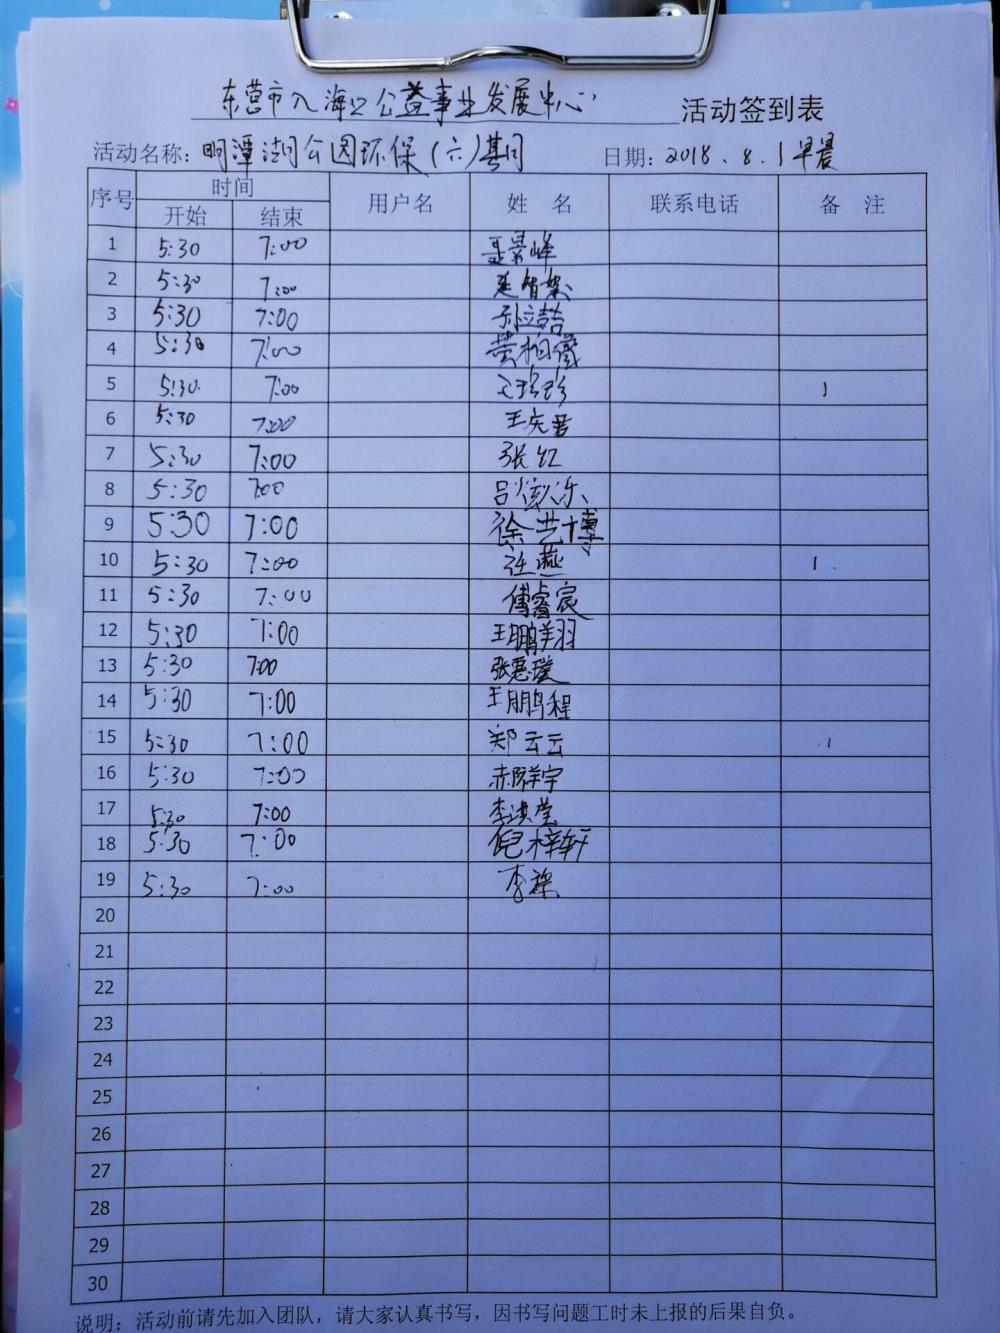 东营市入海口公益事业发展中心 活动签到表
活动名称：明潭湖公园环保（六）期 日期：2018.8.1早晨
序号 时间 用户名 姓 名 联系电话 备 注
开始 结束
1 5:30 7:00 聂景峰
2 5:30 7:00
3 5:30 7:00 孙立喆
4 5:30 7:00
5 5:30 7:00 1
6 5:30 7:00 王庆君
7 5:30 7:00 张红
8 5:30 7:00
9 5:30 7:00 徐艺博
10 5:30 7:00 张燕 1
11 5:30 7:00 傅睿宸
12 5:30 7:00 王鹏翔
13 5:30 7:00
14 5:30 7:00 王鹏程
15 5:30 7:00 郑云云 1
16 5:30 7:00
17 5:30 7:00 李淇莹
18 5:30 7:00 倪梓轩
19 5:30 7:00
20
21
22
23
24
25
26
27
28
29
30
说明：活动前请先加入团队，请大家认真书写，因书写问题工时未上报的后果自负。